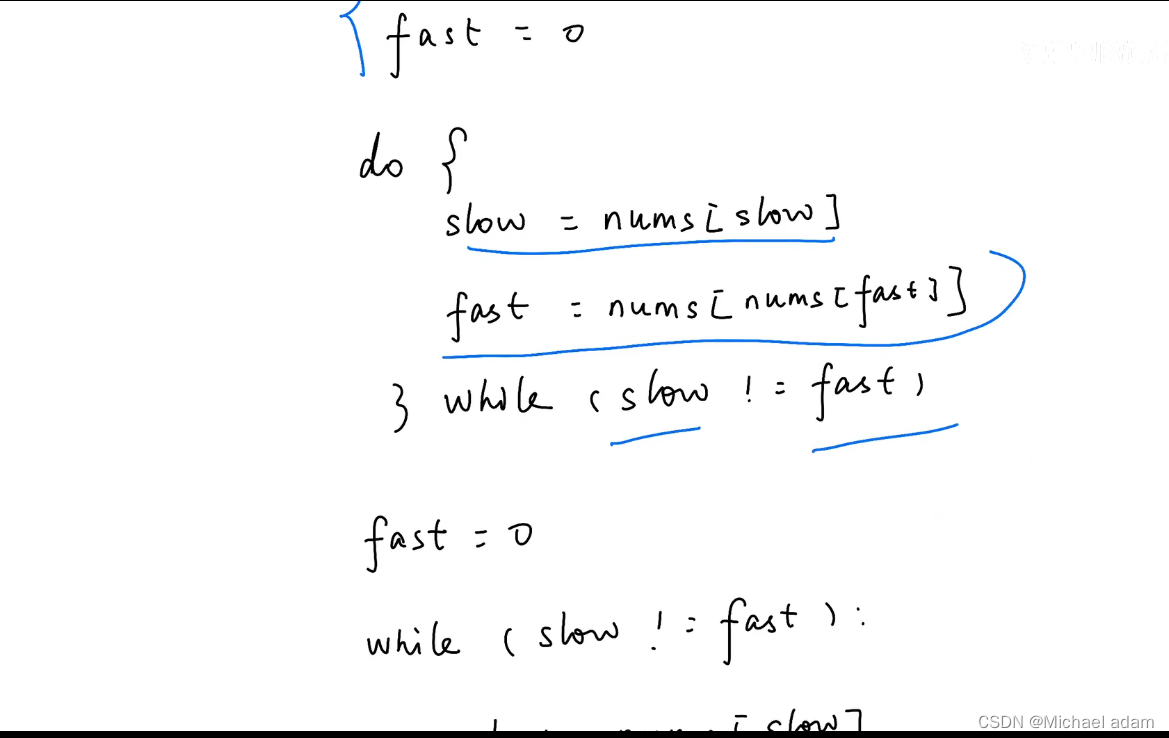 fast = 0
do {
slow = nums[slow]
fast = nums[nums[fast]]
} while (slow != fast)
fast = 0
while (slow != fast):
[slow]
CSDN @Michael adam